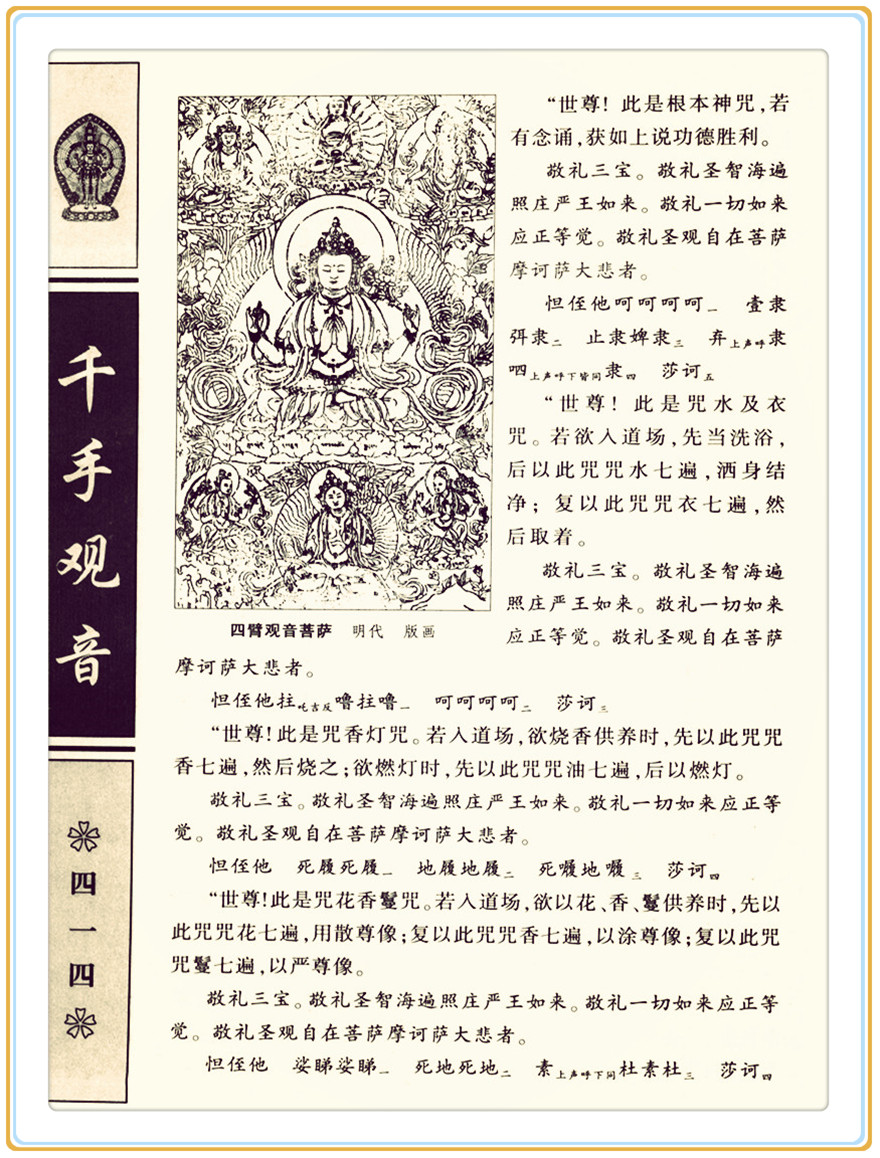 千手观音
四一四
“世尊！此是根本神咒，若
有念诵，获如上说功德胜利。
敬礼三宝。敬礼圣智海遍
照庄严王如来。敬礼一切如来
应正等觉。敬礼圣观自在菩萨
摩诃萨大悲者。
怛侄他呵呵呵呵一 壹隶
弭隶二 止隶婢隶三 弃上声呼隶
呬上声呼下皆同隶四 莎诃五
“世尊！此是咒水及衣
咒。若欲入道场，先当洗浴，
后以此咒咒水七遍，洒身结
净；复以此咒咒衣七遍，然
后取着。
敬礼三宝。敬礼圣智海遍
照庄严王如来。敬礼一切如来
应正等觉。敬礼圣观自在菩萨
四臂观音菩萨 明代 版画
摩诃萨大悲者。
怛侄他拄吒古反噜拄噜一 呵呵呵呵二 莎诃三
“世尊！此是咒香灯咒。若入道场，欲烧香供养时，先以此咒咒
香七遍，然后烧之；欲燃灯时，先以此咒咒油七遍，后以燃灯。
敬礼三宝。敬礼圣智海遍照庄严王如来。敬礼一切如来应正等
觉。敬礼圣观自在菩萨摩诃萨大悲者。
怛侄他 死履死履一 地履地履二 死㘑地㘑三 莎诃四
“世尊！此是咒花香鬘咒。若入道场，欲以花、香、鬘供养时，先以
此咒咒花七遍，用散尊像；复以此咒咒香七遍，以涂尊像；复以此咒
咒鬘七遍，以严尊像。
敬礼三宝。敬礼圣智海遍照庄严王如来。敬礼一切如来应正等
觉。敬礼圣观自在菩萨摩诃萨大悲者。
怛侄他 娑睇娑睇一 死地死地二 素上声呼下同杜素杜三 莎诃四